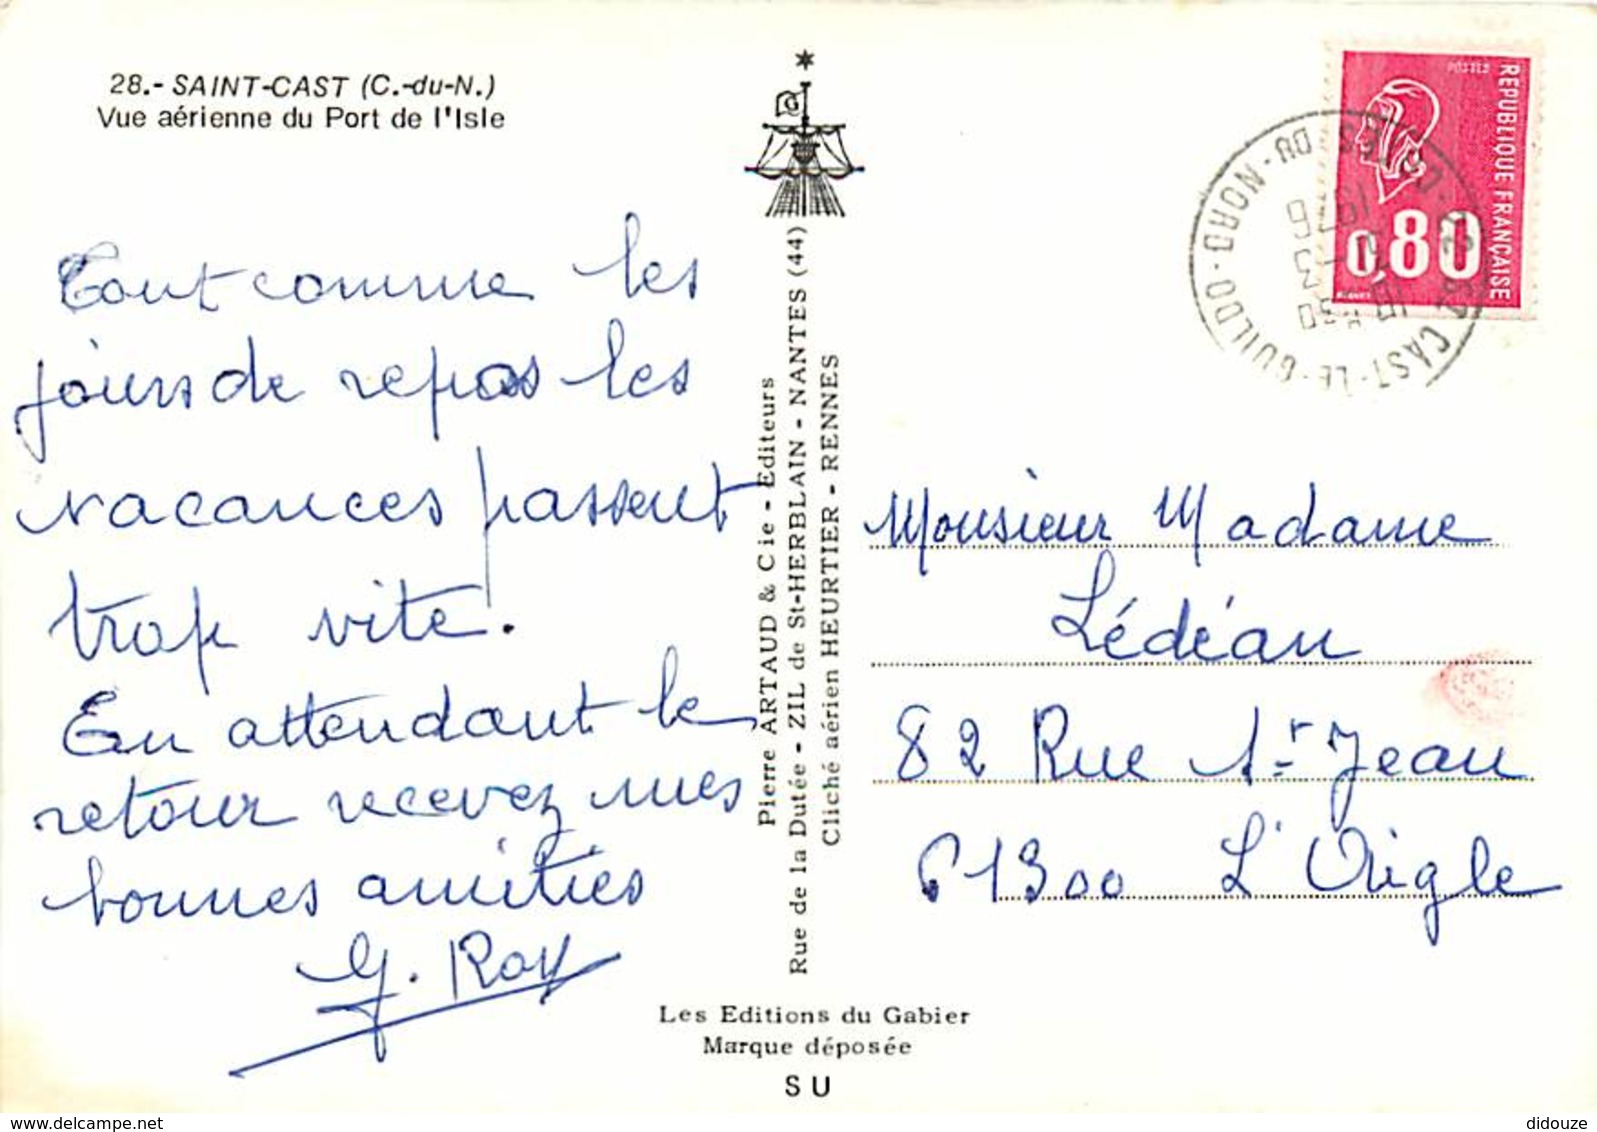 28.- SAINT-CAST (C.-du-N.)
Vue aérienne du Port de l'Isle
Tout comme les
jours de repos les
vacances passent
trop vite.
En attendant le
retour recevez mes
bonnes amitiés
G. Roy
Pierre ARTAUD & Cie - Editeurs
Rue de la Dutée - ZIL de St-HERBLAIN - NANTES (44)
Cliché aérien HEURTIER - RENNES
Les Editions du Gabier
Marque déposée
SU
POSTES
REPUBLIQUE FRANÇAISE
0,80
CAST-LE-GUILDO
NORD
1976
Monsieur Madame
Lédéan
82 Rue St-Jean
61300 L'Aigle
delcampe.net
didouze